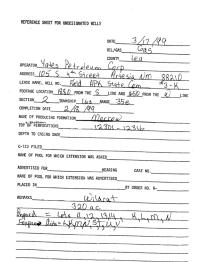 REFERENCE SHEET FOR UNDESIGNATED WELLS
DATE 3/17/99
OIL/GAS Gas
COUNTY Lea
OPERATOR Yates Petroleum Corp
ADDRESS 105 S 4th Street Artesia NM 88210
LEASE NAME, WELL NO. State Com #3-K
FOOTAGE LOCATION, 1980 FROM THE S LINE AND 1650 FROM THE LINE
SECTION 2 TOWNSHIP 16s RANGE 35e
COMPLETION DATE
NAME OF PRODUCING FORMATION Morrow
TOP OF PERFORATIONS 12301-12316
DEPTH TO CASING SHOE
C-123 FILED
NAME OF POOL FOR WHICH EXTENSION WAS ASKED
ADVERTISED FOR HEARING CASE NO.
NAME OF POOL FOR WHICH EXTENSION WAS ADVERTISED
PLACED IN BY ORDER NO. R-
REMARKS Wildcat
320 ac
= Lots 11, 12, 13, 14 K, L, M, N